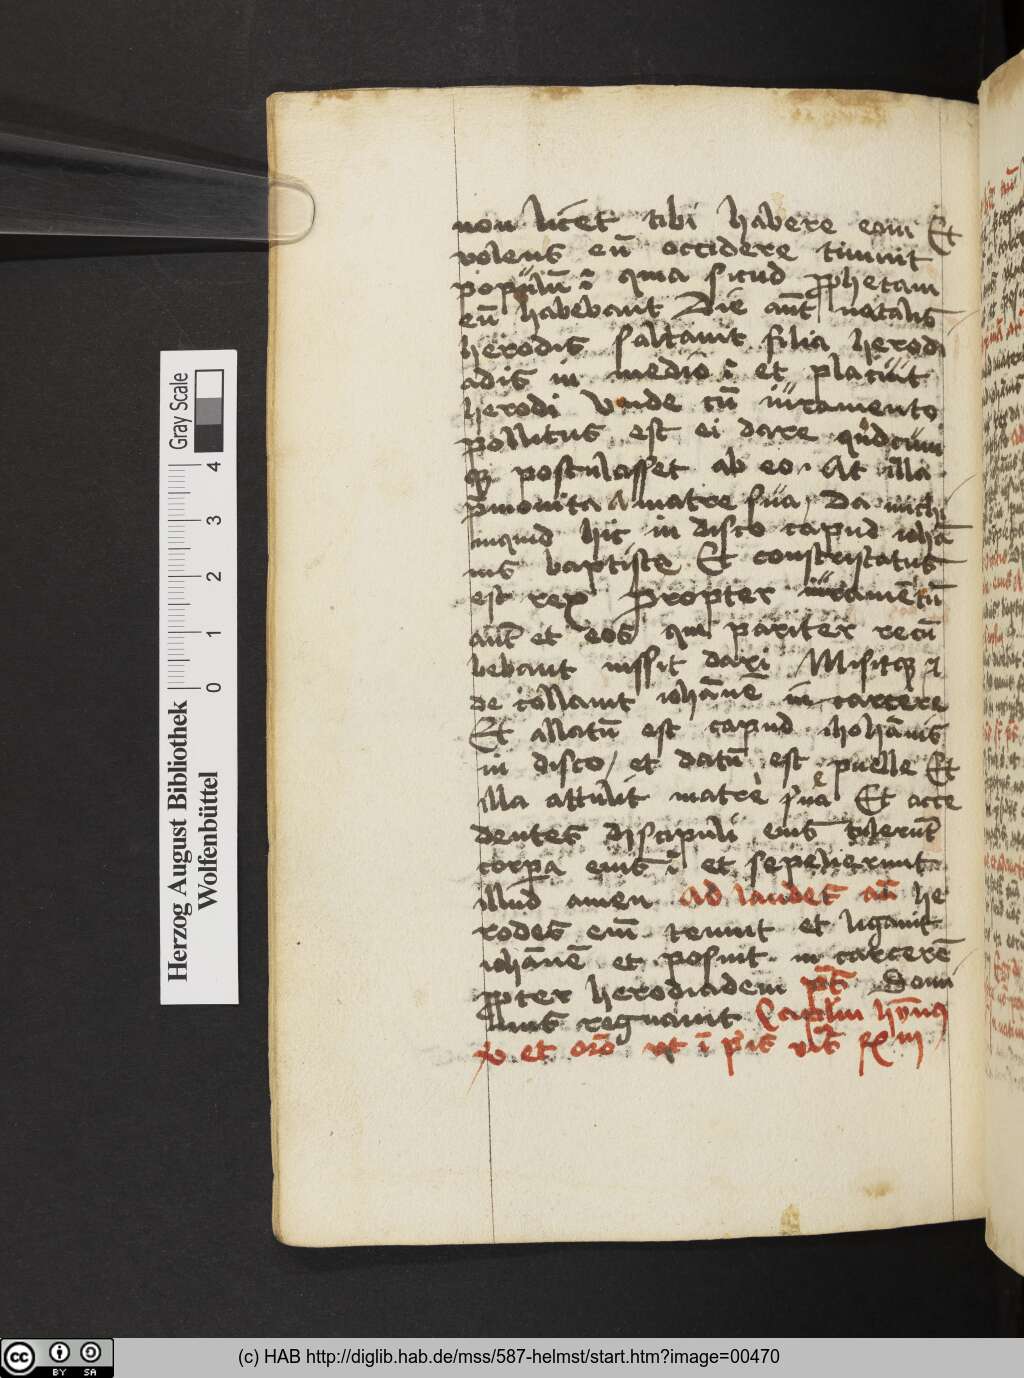 non licet tibi habere eam Et
volens eū occidere timuit
populū ī quia sicud prophetam
eū habebant Die aūt natalis
herodis saltavit filia herodi
adis in medio ī et placuit
herodi Vnde cū iuramento
pollitus est ei dare quodcum
qꝫ postulasset ab eo At illa
p̄monita a matre sua / Da michi
inquid hic in disco capud iohā
nis baptiste Et constristatus
est rex Propter iuramētū
aūt et eos qui pariter recū
bebant iussit dari Misitqꝫ ⁊
de collauit iohānē in carcere
Et allatū est capud ihohānis
in disco / et datū est puelle Et
illa attulit matre sua Et acce
dentes discipuli eius tulerūt
corpꝰ eius ī et sepelierunt
illud amen Ad laudes añ he
rodes eni tenuit et ligauit
iohānē et posuit in carcerē
propter herodiadem p̄s Domi
nus regnauit Caplm hȳnus
v̄ et oro vt ī p̄is vīs
Herzog August Bibliothek
Wolfenbüttel
Gray Scale
0 1 2 3 4
(c) HAB http://diglib.hab.de/mss/587-helmst/start.htm?image=00470
cc BY SA